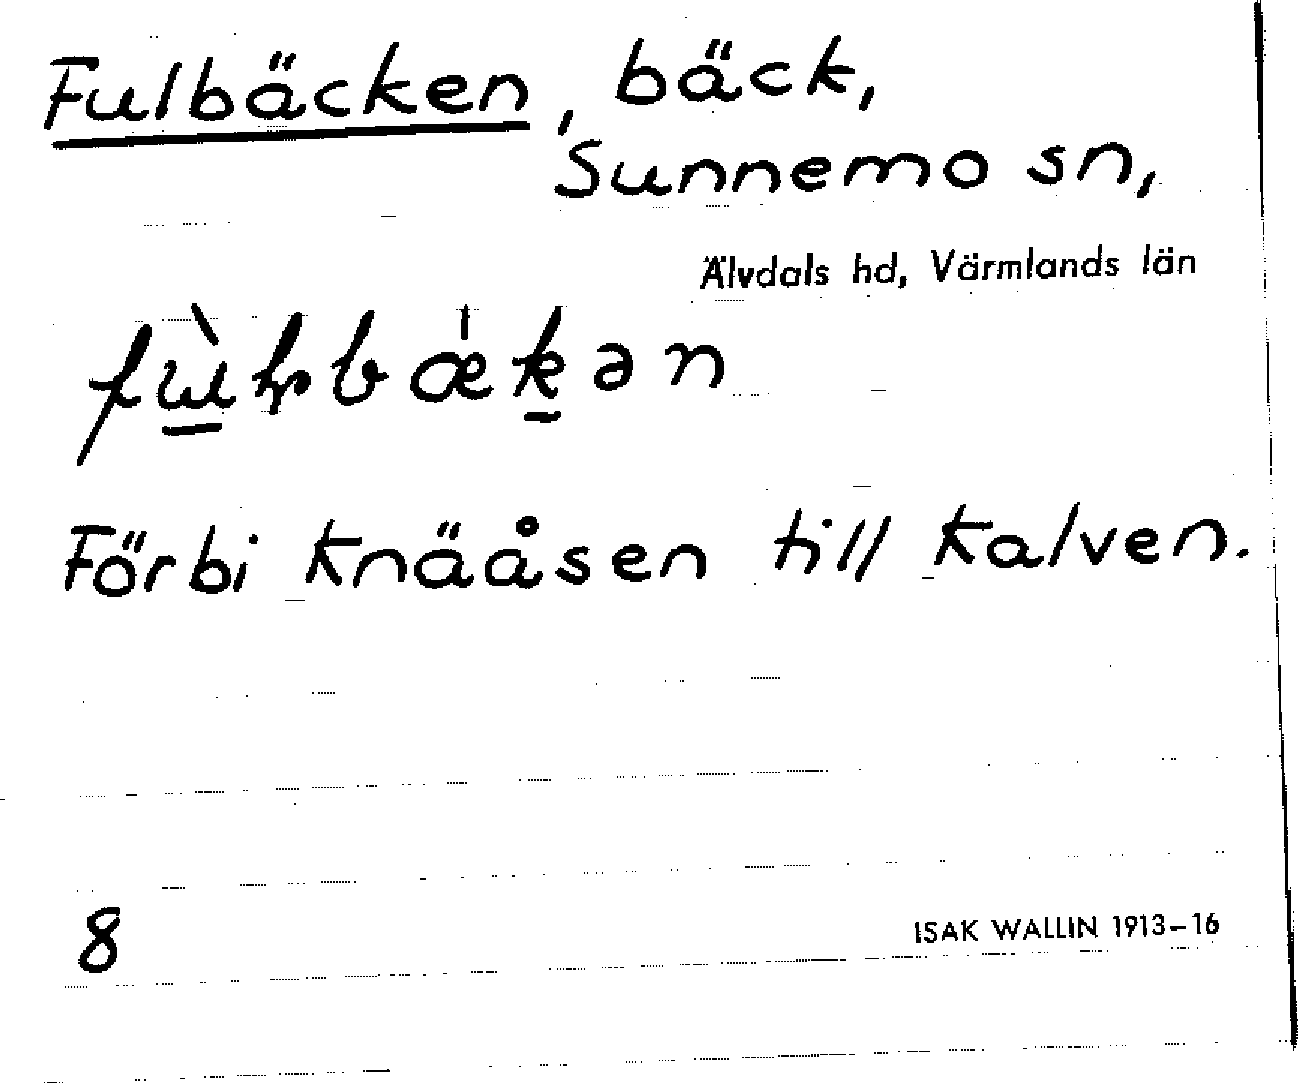 Fulbäcken, bäck,
Sunnemo sn,
Älvdals hd, Värmlands län
Förbi Knäåsen till Kalven.
8
ISAK WALLIN 1913-16